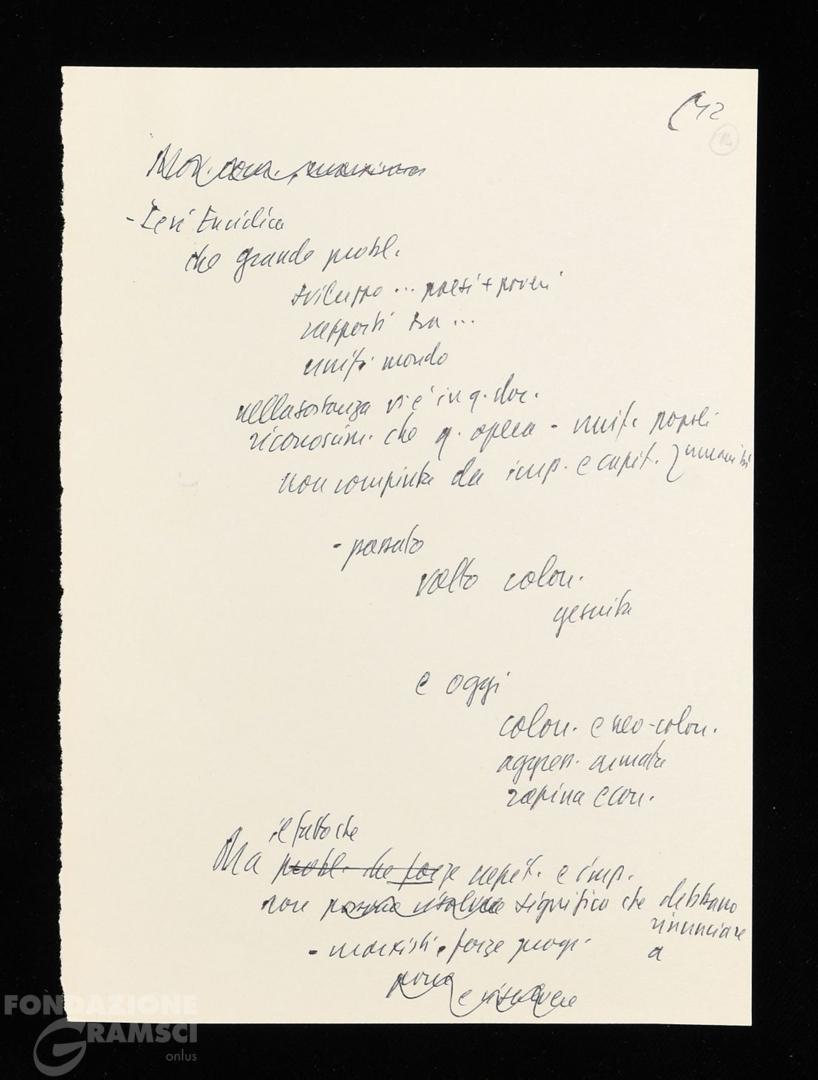 (42
- Ieri Enciclica
che grande probl.
sviluppo ... paesi + poveri
rapporti tra ...
unif. mondo
nella sostanza vi è in q. doc.
riconoscim. che q. opera - unif. popoli
umanità
non compiuta da imp. e capit.
- passato
volto colon.
gesuita
e oggi
colon. e neo-colon.
aggress. armata
rapina econ.
il fatto che
Ma probl. che forze capit. e imp.
non possono risolvere significa che debbano
rinunciare
a
- marxisti e forze progr.
porre
e risolvere
FONDAZIONE
GRAMSCI
onlus